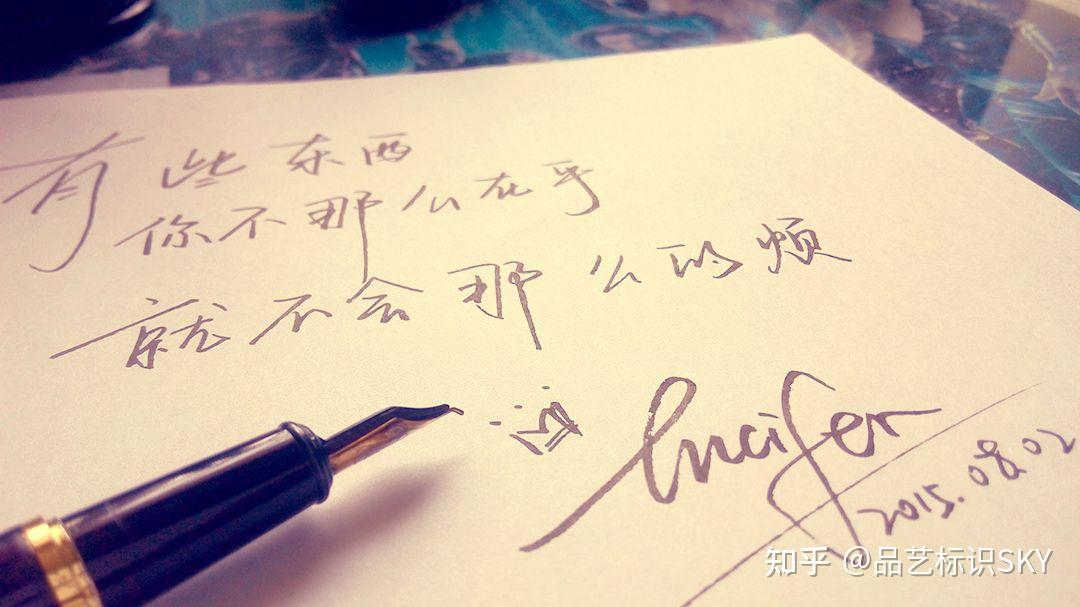 有些东西
你不那么在乎
就不会那么的烦
Lucifer
2015.08.02
知乎 @品艺标识SKY